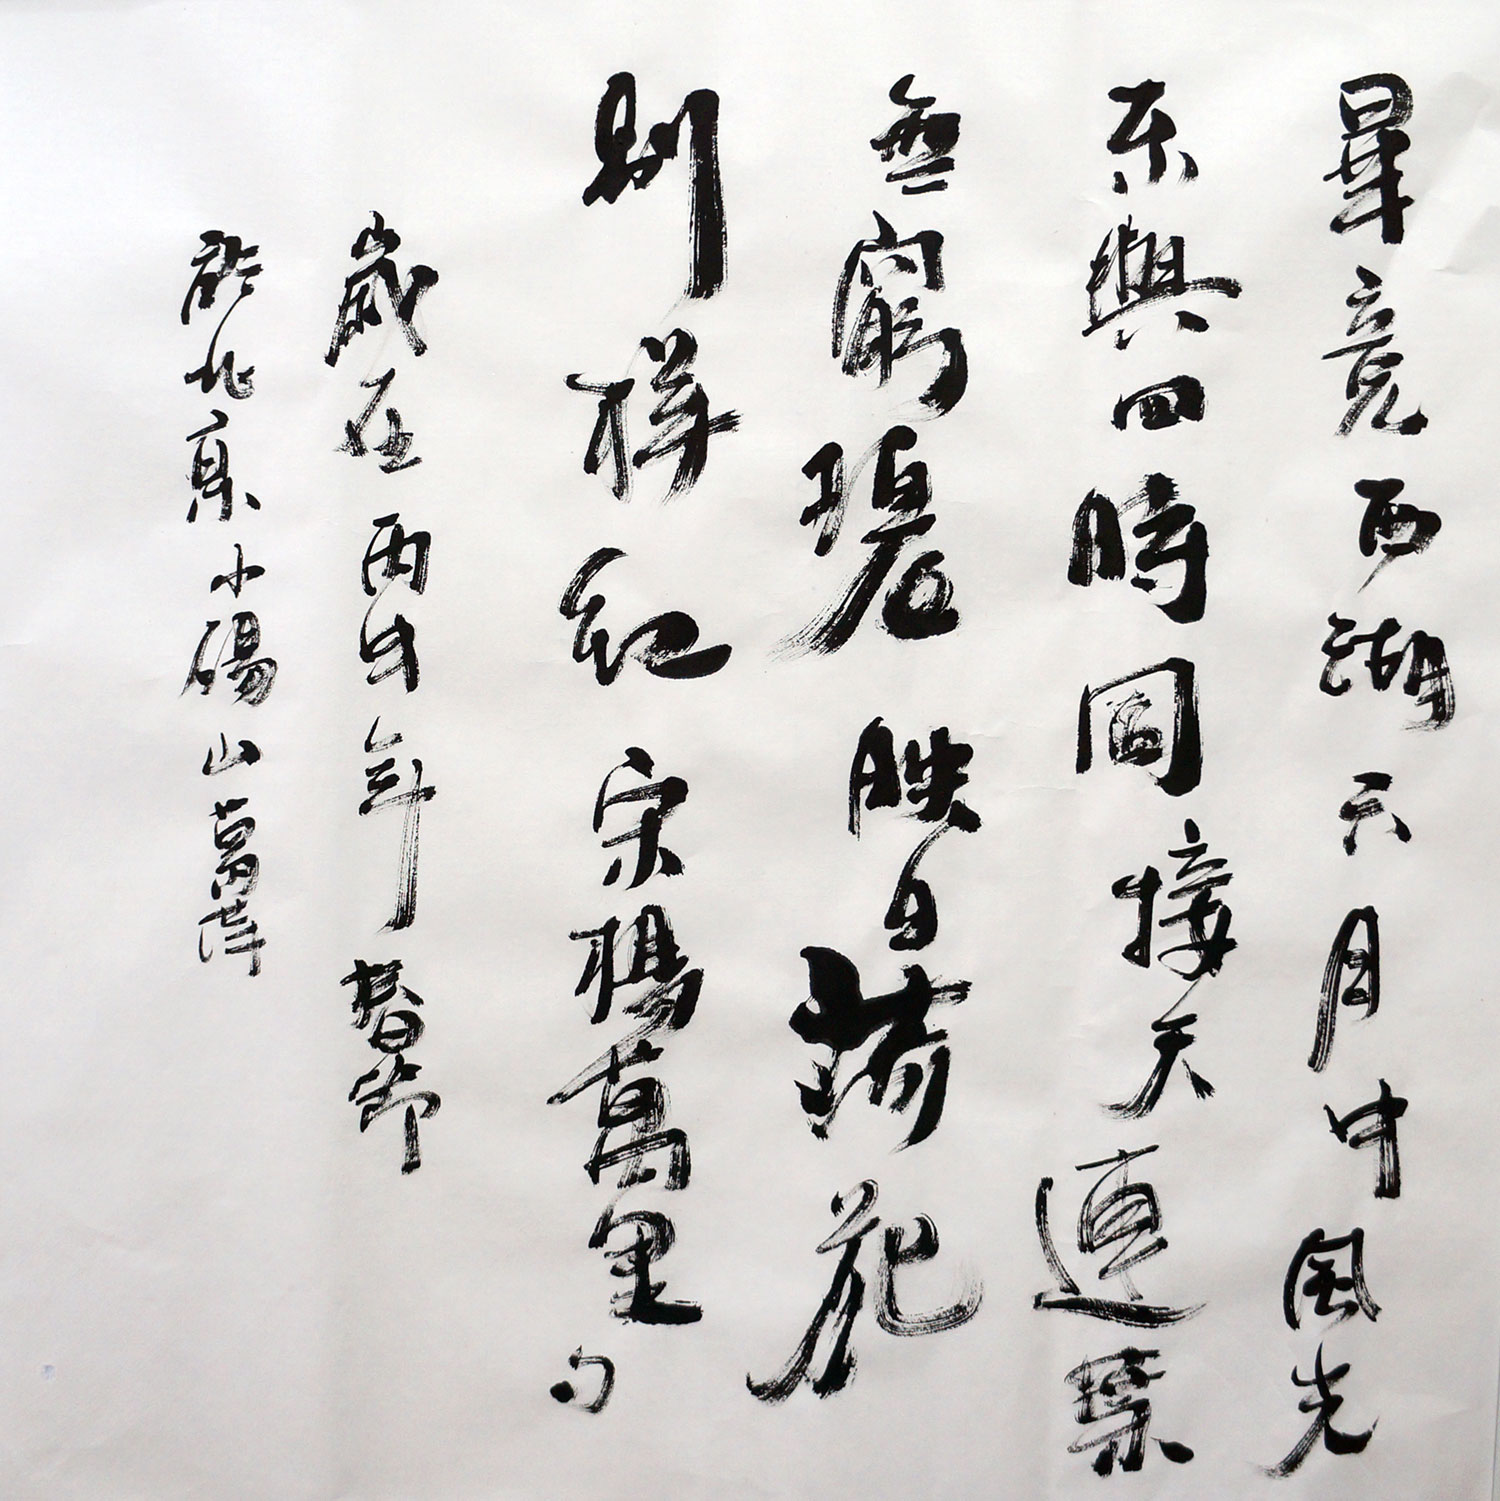 畢竟西湖六月中風光
不與四時同接天蓮葉
無窮碧映日荷花
別樣紅宋楊萬里句
歲在丙申年春節
於北京小碭山